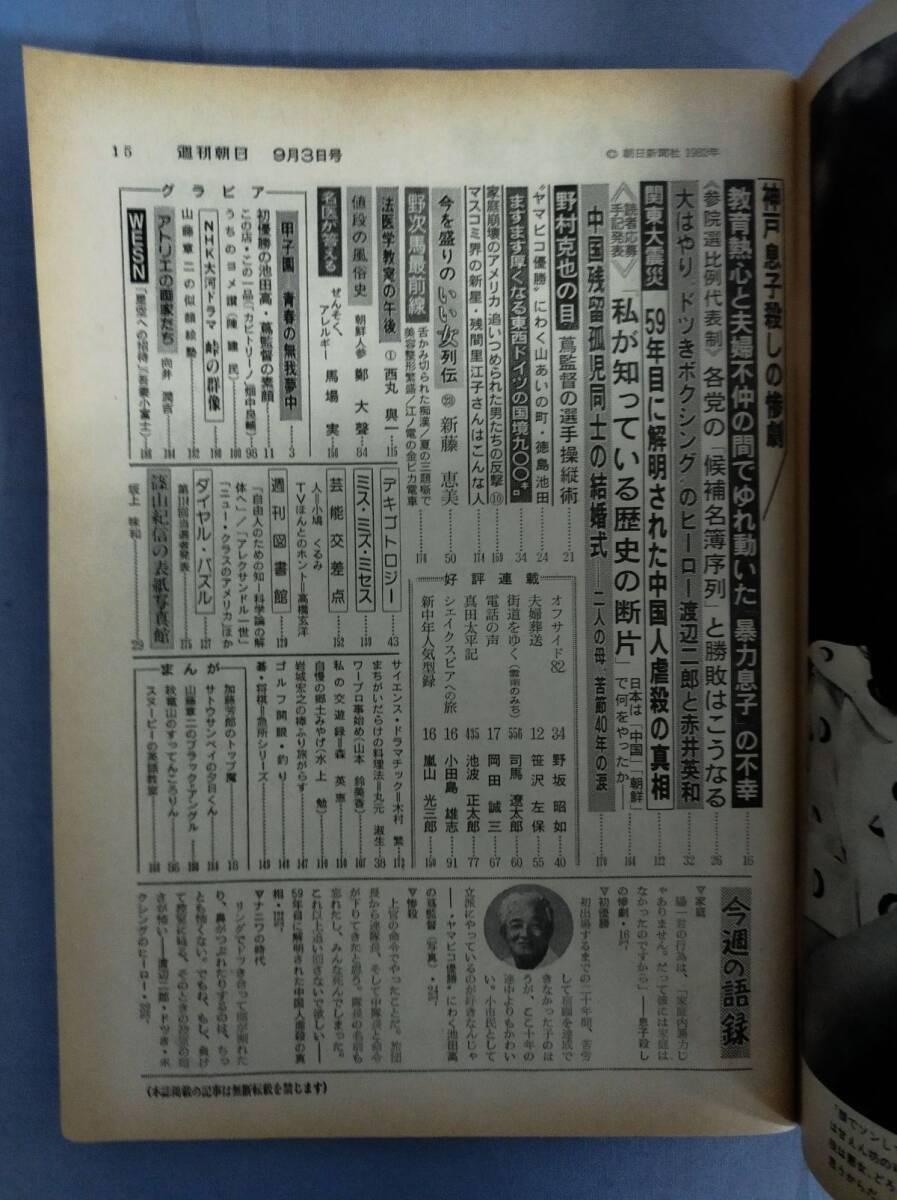 15 週刊朝日 9月3日号
© 朝日新聞社 1982年
神戸息子殺しの惨劇
教育熱心と夫婦不仲の間でゆれ動いた「暴力息子」の不幸 16
《参院選比例代表制》各党の「候補名簿序列」と勝敗はこうなる 26
大はやり“ドツきボクシング”のヒーロー渡辺二郎と赤井英和 32
関東大震災 59年目に解明された中国人虐殺の真相 122
《読者応募手記発表》「私が知っている歴史の断片」 日本は「中国」「朝鮮」で何をやったか 164
中国残留孤児同士の結婚式――二人の母、苦節40年の涙 170
野村克也の目 蔦監督の選手操縦術 21
“ヤマビコ優勝”にわく山あいの町・徳島池田 24
ますます厚くなる東西ドイツの国境九〇〇キロ 34
家庭崩壊のアメリカ 追いつめられた男たちの反撃⑩ 159
マスコミ界の新星・残間里江子さんはこんな人 174
今を盛りのいい女列伝 新藤恵美 50
野次馬最前線 舌かみ切られた痴漢/夏の三題噺で
美容整形繁盛/江ノ電の金ピカ電車 174
法医学教室の午後 ① 西丸與一 115
値段の風俗史 朝鮮人参 鄭大聲 84
名医が答える ぜんそく、アレルギー 馬場実 156
グラビア
甲子園 青春の無我夢中 3
初優勝の池田高・蔦監督の素顔 11
この店・この一品(カピトリーノ)(畑中良輔) 98
うちのヨメ讃(陳建民) 100
NHK大河ドラマ 峠の群像
山藤章二の似顔絵塾
アトリエの画家たち 向井潤吉
WESN「星空への招待」(吾妻小富士)
好評連載
オフサイド82 34 野坂昭如 40
夫婦葬送 12 笹沢左保 55
街道をゆく(雲南のみち) 556 司馬遼太郎 60
電話の声 17 岡田誠三 67
真田太平記 435 池波正太郎 77
シェイクスピアへの旅 16 小田島雄志 91
新中年人気型録 16 嵐山光三郎 150
デキゴトロジー 43
ミス・ミズ・ミセス
芸能交差点 152
人=小鳩くるみ
TVほんとのホント=高橋玄洋
週刊図書館 129
「自由人のための知―科学論の解体へ」/「アレクサンドル一世」
「ニュー・クラスのアメリカ」ほか
ダイヤル・パズル 127
第 回当選者発表 175
篠山紀信の表紙写真館
坂上味和 29
サイエンス・ドラマチック=木村繁 112
まちがいだらけの料理法=丸元淑生 38
ワープロ事始め(山本鈴美香) 107
私の交遊録=森英恵
自慢の郷土みやげ(水上勉)
岩城宏之の棒ふり旅がらす 147
ゴルフ開眼・釣り
碁・将棋=急所シリーズ
まんが
加藤芳郎のトップ魔 18
サトウサンペイの夕日くん
山藤章二のブラック・アングル
秋竜山のすってんころりん 86
スヌーピーの英語教室
今週の語録
▽家庭
陽一君の行為は、「家庭内暴力じゃありません。だって彼には家庭はなかったのですから」――息子殺しの惨劇・16㌻
▽初優勝
初出場するまでの二十年間、苦労して宿願を達成できなかった子のほうが、ここ十年の連中よりもかわいい。小市民として立派にやっているのが好きなんじゃ――“ヤマビコ優勝”にわく池田高の蔦監督(写真)・24㌻
▽惨殺
上官の命令でやったことだ。旅団長から連隊長、そして中隊長と命令が下りてきたと思う。隊長の名前も忘れたし、みんな死んでしまった。これ以上追い回さないで欲しい――59年目に解明された中国人虐殺の真相・122㌻
▽ナニワの時代
リングでドツき合って顔が割れたり、鼻がつぶれたりするのは、ちっとも怖くない。でもね、もし、負けて教室に帰る、そのときの 怖さが怖い――渡辺二郎・ドツき・ボクシングのヒーロー・32㌻
(本誌掲載の記事は無断転載を禁じます)